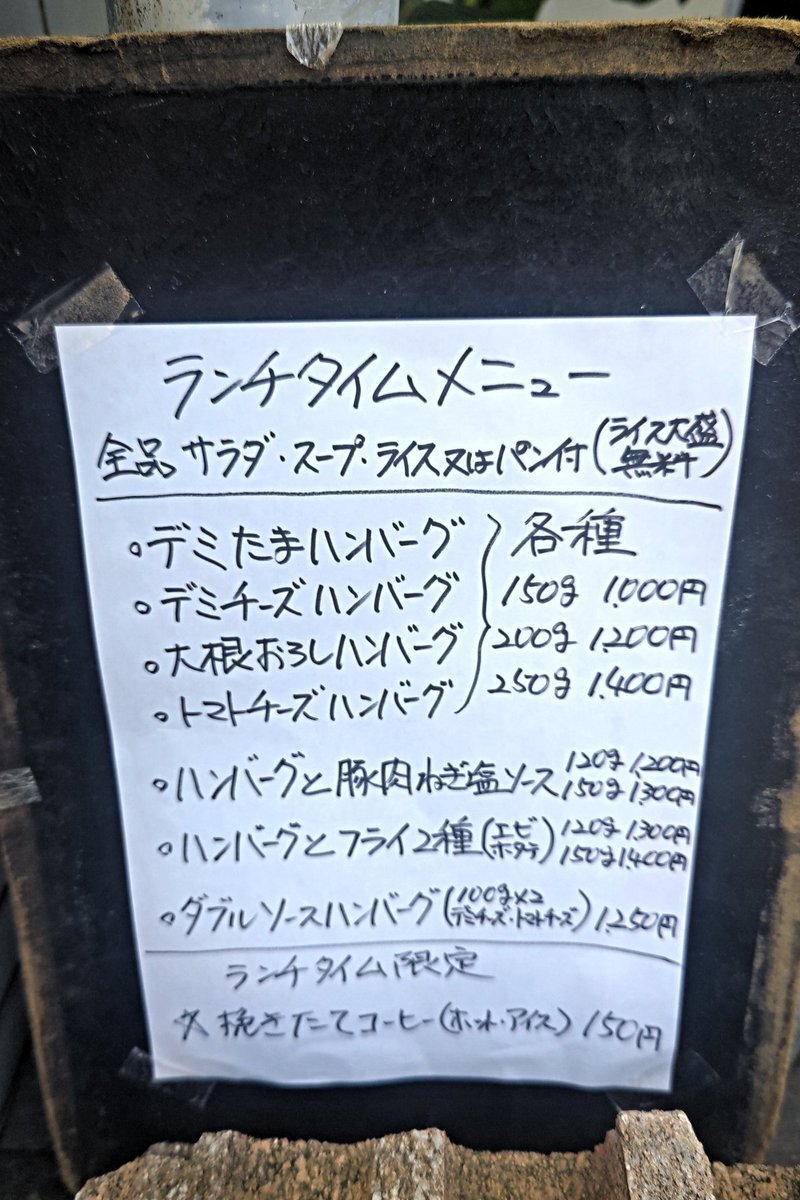 ランチタイムメニュー
全品 サラダ・スープ・ライス又はパン付(ライス大盛無料)
○デミたまハンバーグ
○デミチーズハンバーグ
○大根おろしハンバーグ
○トマトチーズハンバーグ
各種
150g 1,000円
200g 1,200円
250g 1,400円
○ハンバーグと豚肉ねぎ塩ソース 120g 1,200円
150g 1,300円
○ハンバーグとフライ2種(エビ ホタテ) 120g 1,300円
150g 1,400円
○ダブルソースハンバーグ(100g×2 デミチーズ・トマトチーズ) 1,250円
ランチタイム限定
☆挽きたてコーヒー(ホット・アイス) 150円